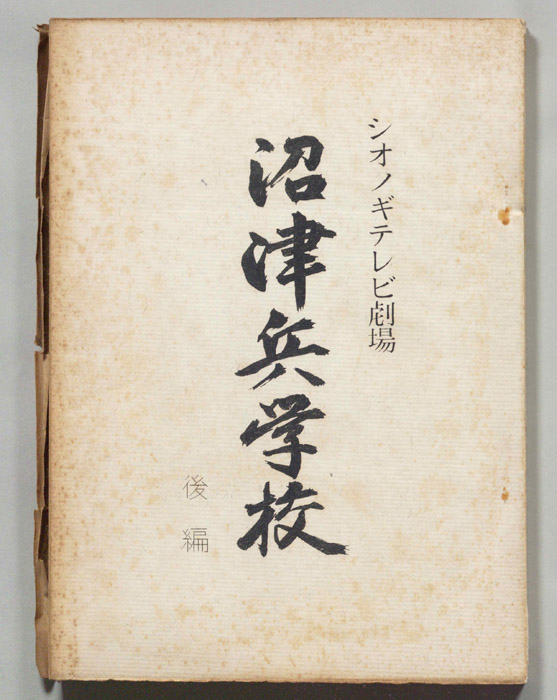 シオノギテレビ劇場
沼津兵学校
後編